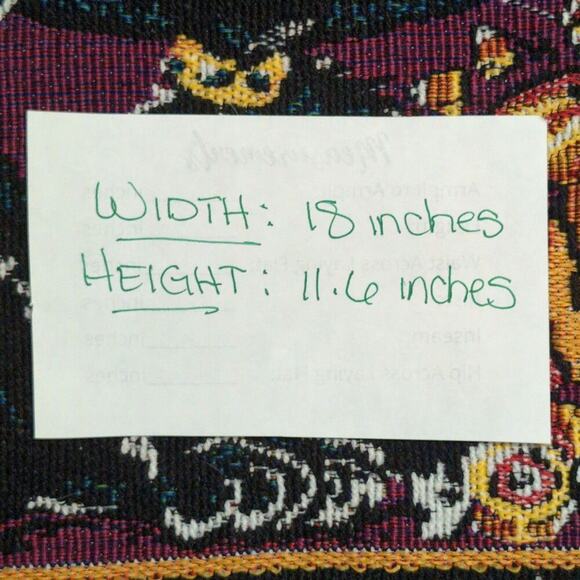 WIDTH: 18 inches
HEIGHT: 11.6 inches